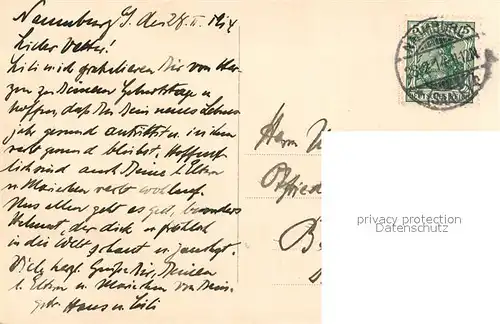 Naumburg S. den 28.II. 1914
Lieber Vetter!
Lili u. ich gratulieren Dir von Her-
zen zu Deinem Geburtstage u.
hoffen, daß Du Dein neues Lebens-
jahr gesund antrittst u. in ihm
recht gesund bleibst. Hoffent-
lich sind auch Deine l. Eltern
u. Mariechen recht wohlauf.
Uns allen geht es gut, besonders
Helmut, der dick u. fröhlich
in die Welt schaut u. jauchzt.
Viele herzl. Grüße Dir, Deinen
l. Eltern u. Mariechen von Dein.
Hans u. Lili
Herrn
NAUMBURG
(SAALE)
privacy protection
Datenschutz